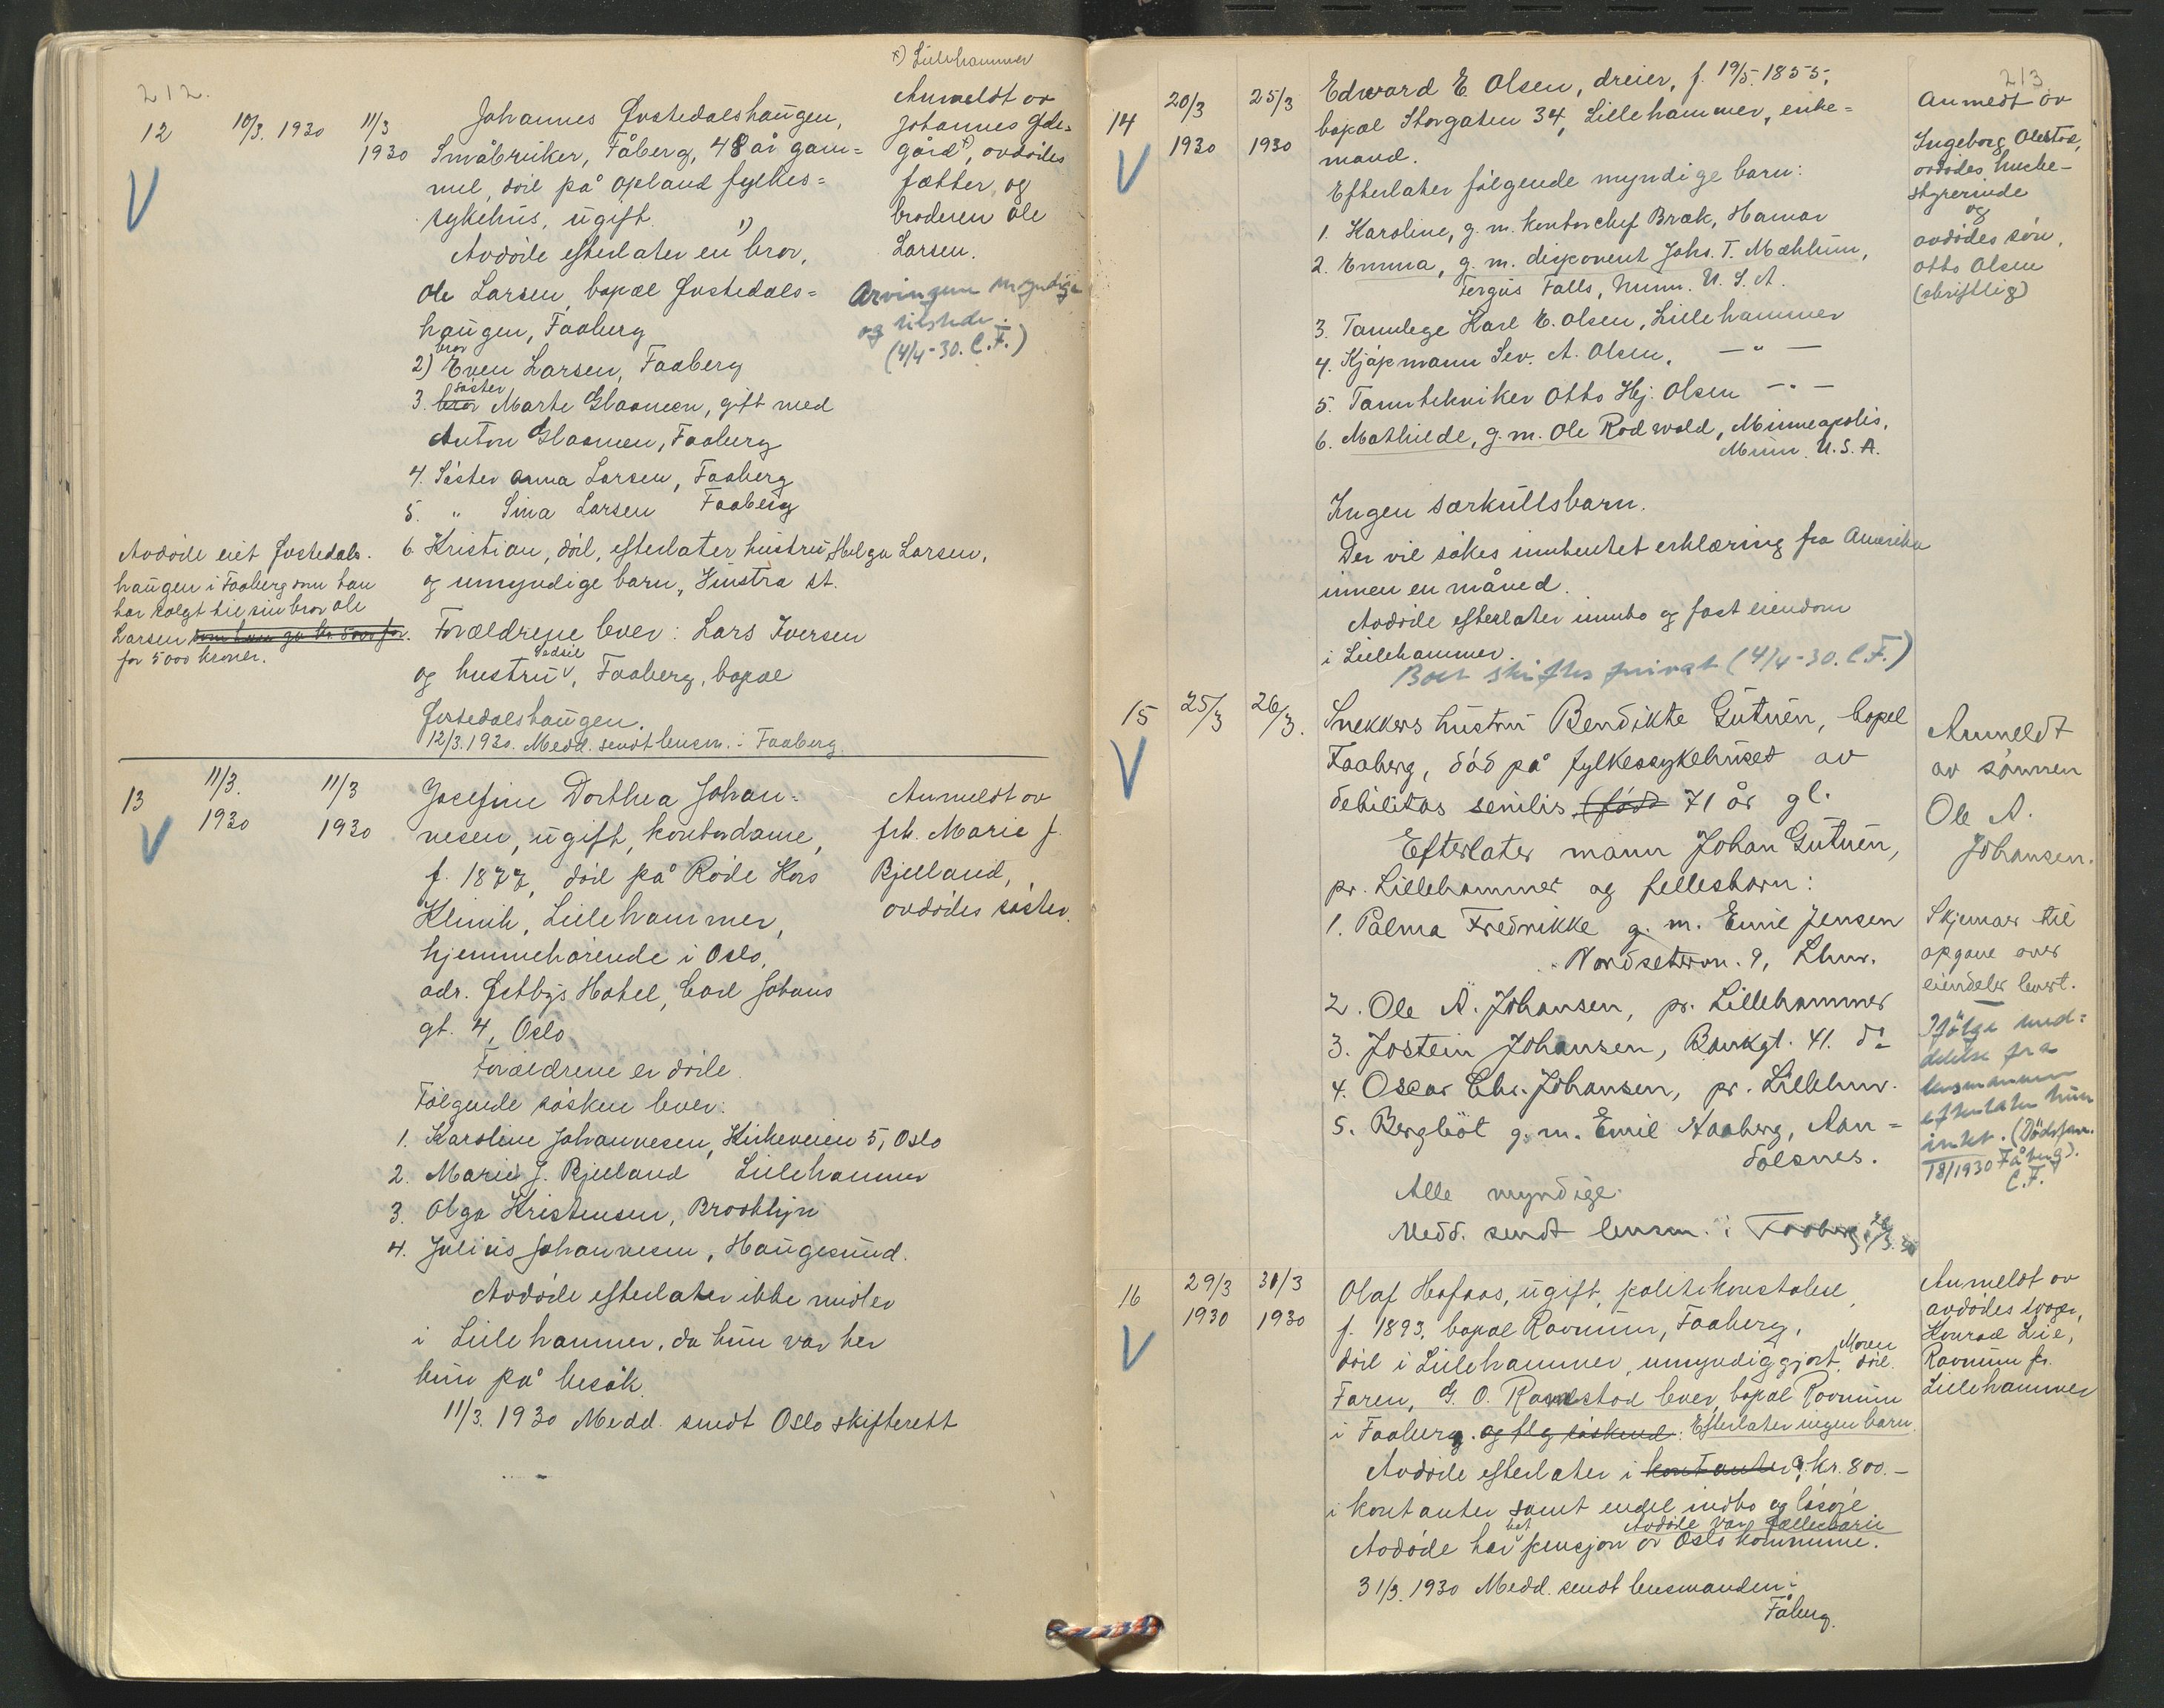 212.
x) Lillehammer
12
10/3. 1930
11/3
1930
Johannes Jostedalshaugen,
Småbruker, Fåberg, 48 år gam=
mel, död på Opland fylkes=
sykehus, ugift.
Avdöde efterlater en bror, 1)
Ole Larsen, bopæl Jostedals=
haugen, Faaberg
bror
2) Even Larsen, Faaberg
söster
3. bror Marte Glaamen, gift med
Anton Glaamen, Faaberg
4. Söster Anna Larsen, Faaberg
5. " Sina Larsen Faaberg
6. Kristian, död, efterlater hustru, Helga Larsen,
og umyndige barn, Hunstra st.
Forældrene lever: Lars Iversen
og hustru, Faaberg, bopæl
Jostedalshaugen.
12/3.1930. Medd. sendt lensm. i Faaberg.
Anmeldt av
Johannes Jde=
gård x), avdödes
fætter, og
broderen Ole
Larsen.
Arvingene myndige
og tilstede.
(4/4-30. C.F.)
Avdöde eiet Jostedals=
haugen i Faaberg som han
har solgt til sin bror Ole
Larsen som han ga kr. 5000 for.
for 5000 kroner.
13
11/3.
1930
11/3
1930
Josefine Dorthea Johan=
nesen, ugift, kontordame,
f. 1877, död på Röde Kors
Klinik, Lillehammer,
hjemmehörende i Oslo,
adr. Östbys Hotel, Carl Johans
gt. 4, Oslo
Forældrene er döde.
Fölgende sösken lever:
1. Karoline Johannesen, Kirkeveien 5, Oslo
2. Marie J. Bjelland Lillehammer
3. Olga Kristensen, Brooklyn
4. Julius Johannesen, Haugesund.
Avdöde efterlater ikke midler
i Lillehammer, da hun var her
kun på besök.
11/3. 1930 Medd. sendt Oslo skifterett
Anmeldt av
frk. Marie J.
Bjelland,
avdödes söster.
213
14
20/3
1930
25/3
1930
Edward E. Olsen, dreier, f. 19/5.1855,
bopæl Storgaten 34, Lillehammer, enke=
mand.
Efterlater fölgende myndige barn:
1. Karoline, g. m. kontorchef Bræk, Hamar
2. Emma, g. m. disponent Johs. T. Mæhlum,
Fergus Falls, Minn. U. S. A.
3. Tannlege Karl E. Olsen, Lillehammer
4. Kjöpmann Sev. A. Olsen, — " —
5. Tanntekniker Otto Hj. Olsen — " —
6. Mathilde, g. m. Ole Rodwold, Minneapolis,
Minn. U.S.A.
Ingen særkullsbarn.
Der vil sökes innhentet erklæring fra Amerika
innen en måned.
Avdöde efterlater innbo og fast eiendom
i Lillehammer.
Boet skiftes privat (4/4-30. C.F.)
Anmeldt av
Ingeborg Olestad,
avdödes huske-
styrerinde
og
avdödes sön,
Otto Olsen
(skriftlig)
15
25/3
26/3.
Snekkers hustru Bendikte Gutuen, bopel
Faaberg, död på fylkessykehuset av
debilitas senilis, (född 71 år gl.
Efterlater mann Johan Gutuen,
pr. Lillehammer og fellesbarn:
1. Palma Fredrikke g. m. Emil Jensen
Nordseterv. 9, Lhmr.
2. Ole A. Johansen, pr. Lillehammer
3. Jostein Johansen, Bankgt. 41. do
4. Oscar Chr. Johansen, pr. Lillehmr.
5. Bergljöt g. m. Emil Aaberg, Aan=
dalsnes.
Alle myndige.
Medd. sendt lensm. i Faaberg 26/3.30
Anmeldt
av sönnen
Ole A.
Johansen.
Skjemaer til
opgave over
eiendeler levert.
Ifölge med=
delelse fra
lensmannen
efterlater hun
intet. (Dödsfan.
18/1930 Fåberg).
C.F.
16
29/3
1930
31/3
1930
Olaf Hafaas, ugift, politikonstabel,
f. 1893, bopæl Ravnum, Faaberg,
död i Lillehammer, umyndiggjort, Moren död.
Faren, G. O. Randstad lever, bopæl Ravnum
i Faaberg. og flg söskend: Efterlater ingen barn.
Avdöde efterlater i kontanter ca. kr. 800.—
i kontanter samt endel indbo og lösöre
Avdöde var fællesbarn
Avdöde har hat pensjon av Oslo kommune.
31/3. 1930 Medd. sendt lensmanden i
Fåberg.
Anmeldt av
avdödes svoger,
Konrad Lie,
Ravnum pr.
Lillehammer